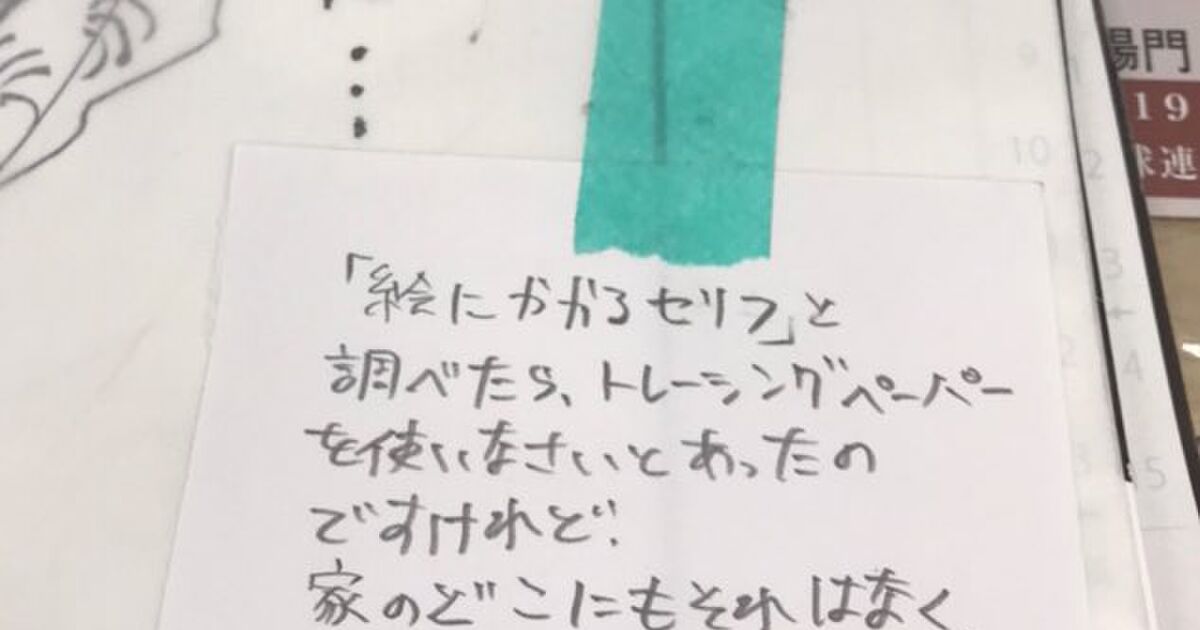 「絵にかかるセリフ」と
調べたら、トレーシングペーパー
を使いなさいとあったの
ですけれど…
家のどこにもそれはなく
場門
19
球連
9
10
2
3
4
5